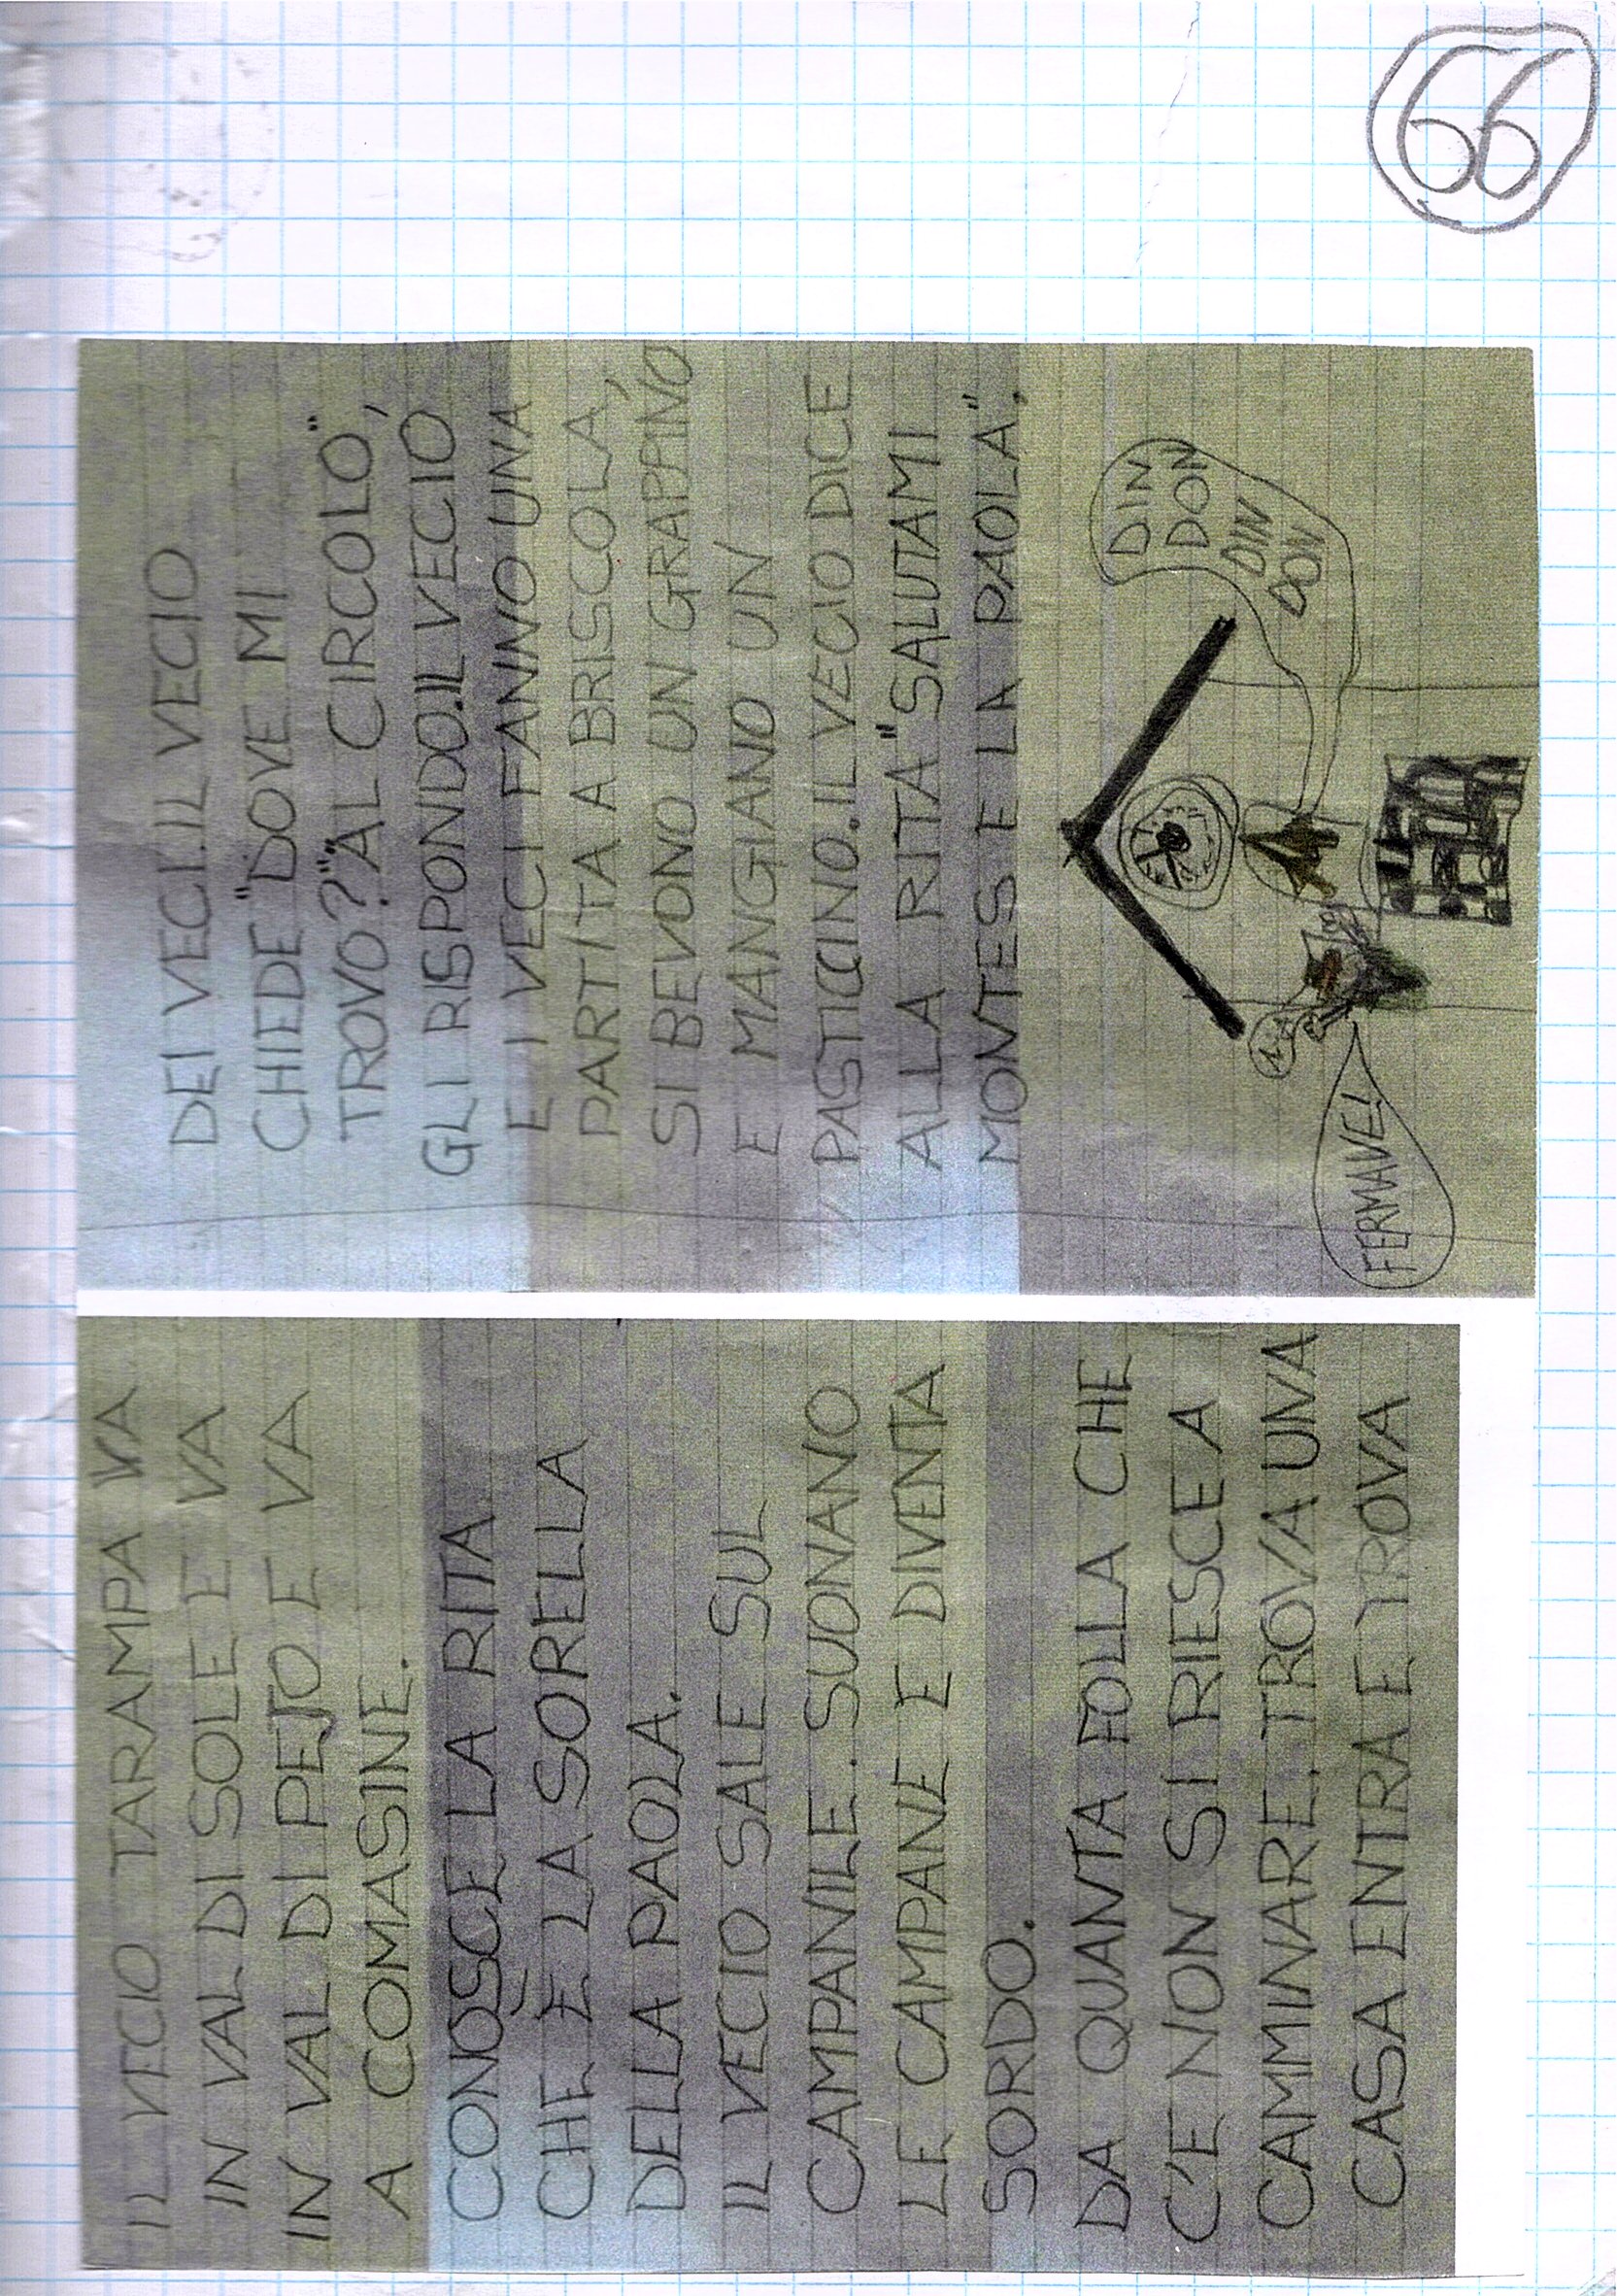 IL VECIO TARAMPA VA
IN VAL DI SOLE E VA
IN VAL DI PEJO E VA
A COMASINE.
CONOSCE LA RITA
CHE È LA SORELLA
DELLA PAOLA.
IL VECIO SALE SUL
CAMPANILE. SUONANO
LE CAMPANE E DIVENTA
SORDO.
DA QUANTA FOLLA CHE
C'E NON SI RIESCE A
CAMMINARE. TROVA UNA
CASA ENTRA E TROVA
DEI VECI. IL VECIO
CHIEDE "DOVE MI
TROVO?" "AL CIRCOLO",
GLI RISPONDO. IL VECIO
E I VECI FANNO UNA
PARTITA A BRISCOLA,
SI BEVONO UN GRAPPINO
E MANGIANO UN
PASTICCINO. IL VECIO DICE
ALLA RITA "SALUTAMI
MONTES E LA PAOLA".
DIN
DON
DIN
DON
FERMAVE!
66